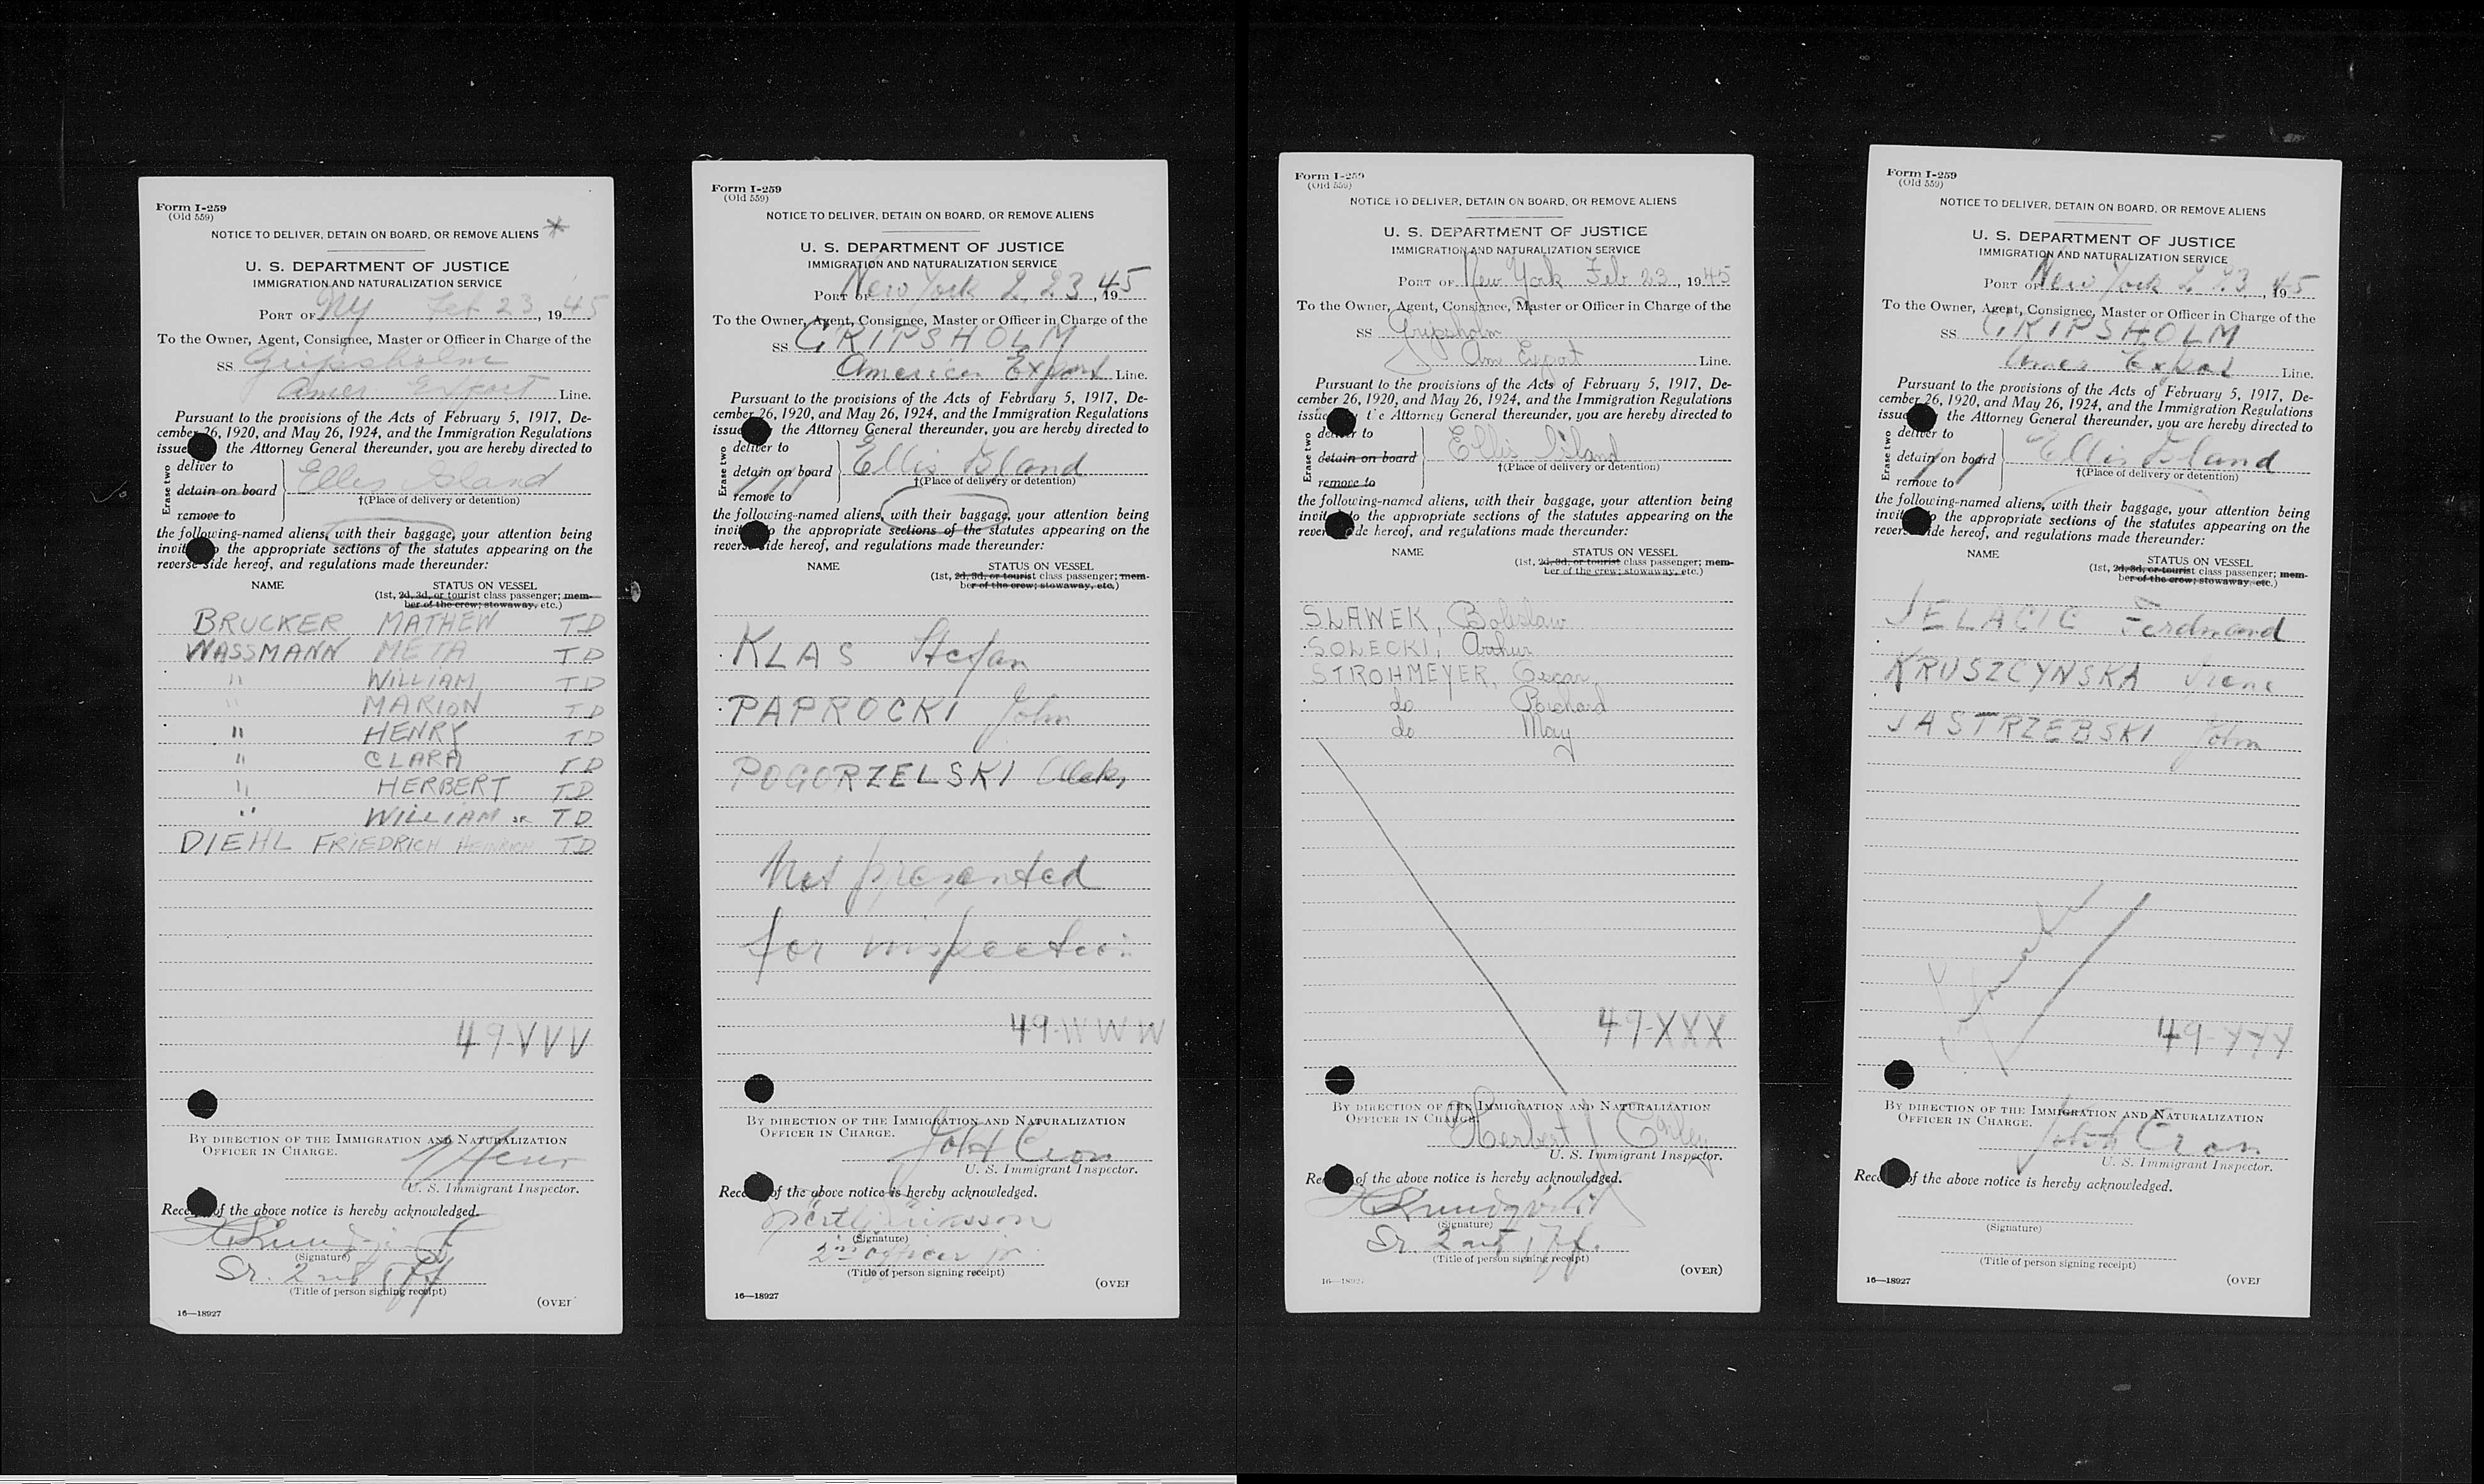 Form I-259
(Old 559)
NOTICE TO DELIVER, DETAIN ON BOARD, OR REMOVE ALIENS *
U. S. DEPARTMENT OF JUSTICE
IMMIGRATION AND NATURALIZATION SERVICE
PORT OF NY Feb 23, 1945
To the Owner, Agent, Consignee, Master or Officer in Charge of the
SS Gripsholm
Amer Export Line.
Pursuant to the provisions of the Acts of February 5, 1917, De-
cember 26, 1920, and May 26, 1924, and the Immigration Regulations
issued the Attorney General thereunder, you are hereby directed to
Erase two
deliver to
detain on board
remove to
Ellis Island
†(Place of delivery or detention)
the following-named aliens, with their baggage, your attention being
invit the appropriate sections of the statutes appearing on the
reverse side hereof, and regulations made thereunder:
NAME STATUS ON VESSEL
(1st, 2d, 3d, or tourist class passenger; mem-
ber of the crew; stowaway, etc.)
BRUCKER MATHEW TD
WASSMANN META TD
" WILLIAM TD
" MARION TD
" HENRY TD
" CLARA TD
" HERBERT TD
" WILLIAM JR TD
DIEHL FRIEDRICH HEINRICH TD
49-VVV
BY DIRECTION OF THE IMMIGRATION AND NATURALIZATION
OFFICER IN CHARGE.
U. S. Immigrant Inspector.
Rece of the above notice is hereby acknowledged.
(Signature)
Sr. 2nd Off
(Title of person signing receipt)
(OVER
16—18927
Form I-259
(Old 559)
NOTICE TO DELIVER, DETAIN ON BOARD, OR REMOVE ALIENS
U. S. DEPARTMENT OF JUSTICE
IMMIGRATION AND NATURALIZATION SERVICE
PORT OF New York 2, 23, 1945
To the Owner, Agent, Consignee, Master or Officer in Charge of the
SS GRIPSHOLM
American Export Line.
Pursuant to the provisions of the Acts of February 5, 1917, De-
cember 26, 1920, and May 26, 1924, and the Immigration Regulations
issued the Attorney General thereunder, you are hereby directed to
Erase two
deliver to
detain on board
remove to
Ellis Island
†(Place of delivery or detention)
the following-named aliens, with their baggage, your attention being
invit the appropriate sections of the statutes appearing on the
reverse side hereof, and regulations made thereunder:
NAME STATUS ON VESSEL
(1st, 2d, 3d, or tourist class passenger; mem-
ber of the crew; stowaway, etc.)
KLAS Stefan
PAPROCKI John
POGORZELSKI Aleks
Not presented
for inspection
49-WWW
BY DIRECTION OF THE IMMIGRATION AND NATURALIZATION
OFFICER IN CHARGE.
John Cron
U. S. Immigrant Inspector.
Rece of the above notice is hereby acknowledged.
(Signature)
2nd Officer Jr
(Title of person signing receipt)
(OVER
16—18927
Form I-259
(Old 559)
NOTICE TO DELIVER, DETAIN ON BOARD, OR REMOVE ALIENS
U. S. DEPARTMENT OF JUSTICE
IMMIGRATION AND NATURALIZATION SERVICE
PORT OF New York Feb 23, 1945
To the Owner, Agent, Consignee, Master or Officer in Charge of the
SS Gripsholm
Am Export Line.
Pursuant to the provisions of the Acts of February 5, 1917, De-
cember 26, 1920, and May 26, 1924, and the Immigration Regulations
issue y the Attorney General thereunder, you are hereby directed to
Erase two
deliver to
detain on board
remove to
Ellis Island
†(Place of delivery or detention)
the following-named aliens, with their baggage, your attention being
invit to the appropriate sections of the statutes appearing on the
rever de hereof, and regulations made thereunder:
NAME STATUS ON VESSEL
(1st, 2d, 3d, or tourist class passenger; mem-
ber of the crew; stowaway, etc.)
SLAWEK, Boleslaw
SOLECKI, Arthur
STROHMEYER, Oscar
do Richard
do May
49-XXX
BY DIRECTION OF THE IMMIGRATION AND NATURALIZATION
OFFICER IN CHARGE.
Herbert J
U. S. Immigrant Inspector.
Re of the above notice is hereby acknowledged.
(Signature)
Sr 2nd Off.
(Title of person signing receipt)
(OVER)
16—18927
Form I-259
(Old 559)
NOTICE TO DELIVER, DETAIN ON BOARD, OR REMOVE ALIENS
U. S. DEPARTMENT OF JUSTICE
IMMIGRATION AND NATURALIZATION SERVICE
PORT OF New York 2 23, 1945
To the Owner, Agent, Consignee, Master or Officer in Charge of the
SS GRIPSHOLM
Amer Export Line.
Pursuant to the provisions of the Acts of February 5, 1917, De-
cember 26, 1920, and May 26, 1924, and the Immigration Regulations
issue the Attorney General thereunder, you are hereby directed to
Erase two
deliver to
detain on board
remove to
Ellis Island
†(Place of delivery or detention)
the following-named aliens, with their baggage, your attention being
invit to the appropriate sections of the statutes appearing on the
rever ide hereof, and regulations made thereunder:
NAME STATUS ON VESSEL
(1st, 2d, 3d, or tourist class passenger; mem-
ber of the crew; stowaway, etc.)
JELACIC Ferdinand
KRUSZCYNSKA Irene
JASTRZEBSKI John
49-YYY
BY DIRECTION OF THE IMMIGRATION AND NATURALIZATION
OFFICER IN CHARGE.
John Cron
U. S. Immigrant Inspector.
Rec of the above notice is hereby acknowledged.
(Signature)
(Title of person signing receipt)
(OVER
16—18927